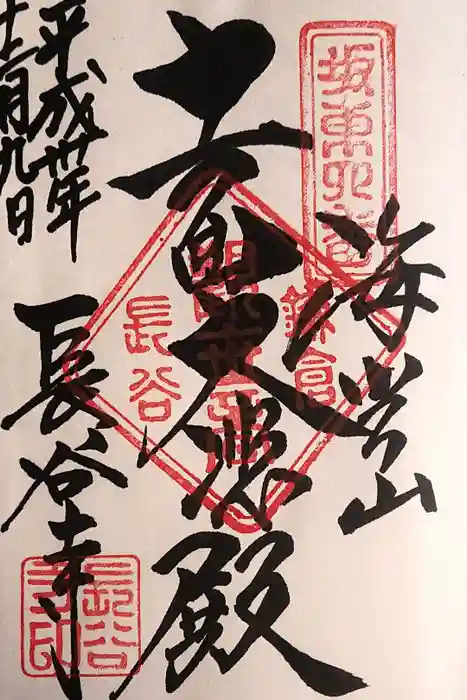 坂東四番
海光山
鎌倉
十一面大悲殿
觀世音
長谷
平成卅年
十二月九日
長谷寺
長谷
寺印